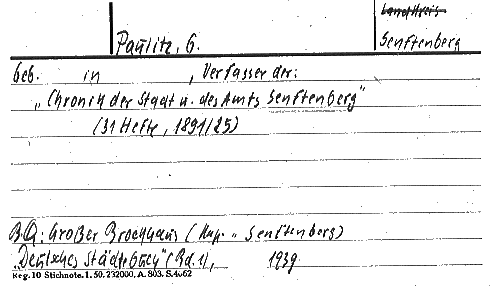 Landkreis
Paulitz, G. Senftenberg
geb. in , Verfasser der:
"Chronik der Stadt u. des Amts Senftenberg"
(31 Hefte, 1891/25)
B.Q.: Großer Brockhaus ( " Senftenberg)
"Deutsches Städtebuch" (Bd. 1), 1939
Reg. 10 Stichnote. 1. 50. 232000. A. 803. S. 4062